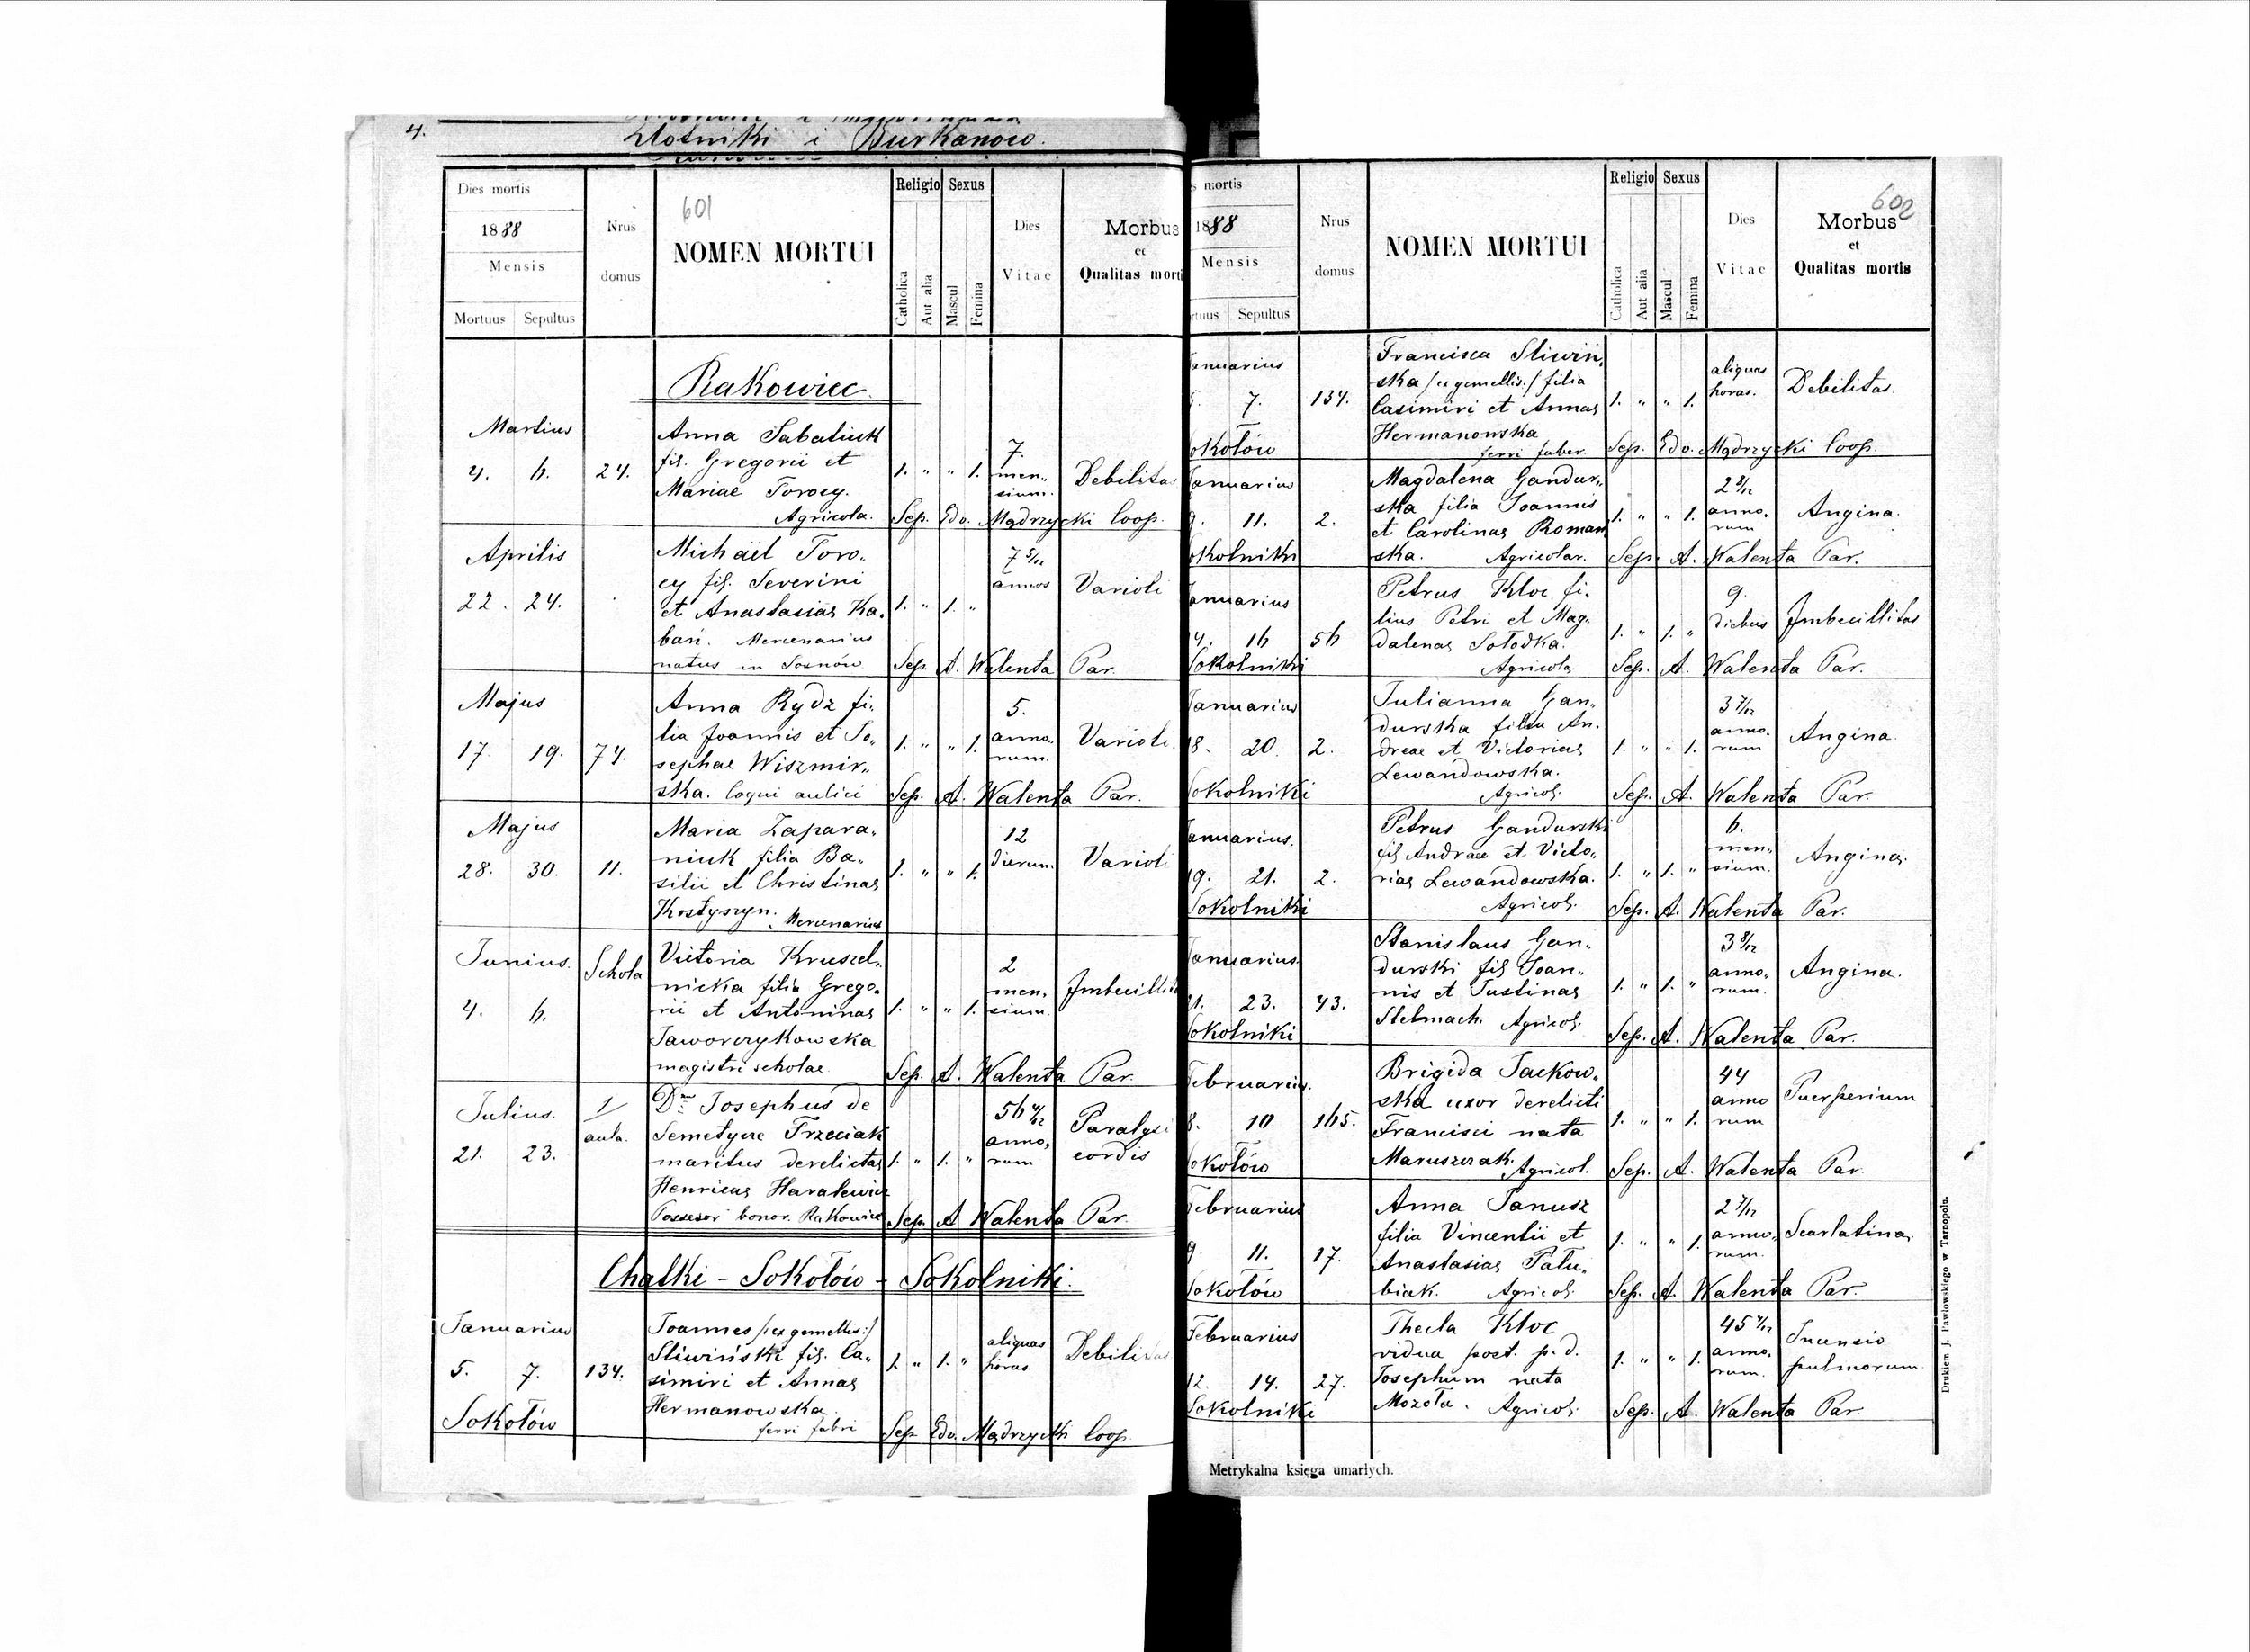 4.
Złotniki i Burkanow.
Dies mortis
1888
Mensis
Mortuus Sepultus
Nrus
domus
601
NOMEN MORTUI
Religio Sexus
Catholica
Aut alia
Mascul
Femina
Dies
Vitae
Morbus
et
Qualitas morti
Rakowiec
Martius
4. 6. 24.
Anna Sabatiuk
fil. Gregorii et
Mariae Torocy.
Agricola.
1. " " 1.
7.
men„
sium.
Debilitas
Sep. Edv. Mądrzycki Coop.
Aprilis
22. 24.
Michäel Toro„
cy fil. Severini
et Anastasiae Ka„
bań. Mercenarius
natus in Sosnów
1. " 1. "
7 5/12
annos
Varioli
Sep. A. Walenta Par.
Majus
17. 19. 74.
Anna Rydz fi„
lia Joannis et Jo„
sephae Wiszmir„
ska. Coqui aulici
1. " " 1.
5.
anno„
rum.
Varioli.
Sep. A. Walenta Par.
Majus
28. 30. 11.
Maria Zapara„
niuk filia Ba„
silii et Christinae
Kostyszyn. Mercenarius
1. " " 1.
12
dierum.
Varioli
Junius.
4. 6.
Schola
Victoria Kruszel„
nicka filia Grego„
rii et Antoninae
Jaworczykowska
magistri scholae.
1. " " 1.
2
men„
sium.
Imbecillitas
Sep. A. Walenta Par.
Julius.
21. 23.
1/
aula.
Dnus Josephus de
Semetycze Trzeciak
maritus derelictae
Henricae Haralewicz
Possesor bonor. Rakowiec
1. " 1. "
56 4/12
anno„
rum
Paralysi
cordis
Sep. A Walenta Par.
Chatki - Sokołów - Sokolniki.
Januarius
5. 7. 134.
Sokołów
Joannes /:ex gemellis:/
Śliwiński fil. Ca„
simiri et Annae
Hermanowska.
ferri fabri
1. " 1. "
aliquas
horas.
Debilitas
Sep. Edv. Mądrzycki Coop.
s mortis
1888
Mensis
rtuus Sepultus
Nrus
domus
NOMEN MORTUI
Religio Sexus
Catholica
Aut alia
Mascul
Femina
Dies
Vitae
602
Morbus
et
Qualitas mortis
anuarius
5. 7. 134.
okołów
Francisca Śliwiń„
ska /:ex gemellis:/ filia
Casimiri et Annae
Hermanowska
ferri faber.
1. " " 1.
aliquas
horas.
Debilitas.
Sep. Edv. Mądrzycki Coop.
Januarius
9. 11. 2.
okolniki
Magdalena Gandur„
ska filia Joannis
et Carolinae Roman
ska. Agricolar.
1. " " 1.
2 8/12
anno„
rum
Angina.
Sep. A. Walenta Par.
anuarius
14. 16 56
Sokolniki
Petrus Kloc fi„
lius Petri et Mag„
dalenae Sołodka.
Agricola
1. " 1. "
9.
diebus
Imbecillitas
Sep. A. Walenta Par.
Januarius
18. 20. 2.
Sokolniki
Julianna Gan„
durska filia An„
dreae et Victoriae
Lewandowska.
Agricol.
1. " " 1.
3 7/12
anno„
rum
Angina.
Sep. A. Walenta Par.
anuarius.
19. 21. 2.
Sokolniki
Petrus Gandurski
fil Andraee et Victo„
riae Lewandowska.
Agricol.
1. " 1. "
6.
men„
sium.
Angina.
Sep. A. Walenta Par.
anuarius.
21. 23. 43.
Sokolniki
Stanislaus Gan„
durski fil Joan„
nis et Justinae
Stelmach. Agricol.
1. " 1. "
3 8/12
anno„
rum.
Angina.
Sep. A. Walenta Par.
Februarius.
8. 10 165.
Sokołów
Brigida Jackow„
ska uxor derelicti
Francisci nata
Maruszczak. Agricol.
1. " " 1.
44
anno
rum
Puerperium
Sep. A. Walenta Par.
Februarius
9. 11. 17.
Sokołów
Anna Janusz
filia Vincentii et
Anastasiae Patu„
biak. Agricol.
1. " " 1.
2 7/12
anno„
rum.
Scarlatina
Sep. A. Walenta Par.
Februarius
12. 14. 27.
Sokolniki
Thecla Kloc
vidua post. p. d.
Josephum nata
Mozoła. Agricol.
1. " " 1.
45 4/12
anno„
rum.
Incensio
pulmorum.
Sep. A. Walenta Par.
Metrykalna księga umarłych.
Drukiem J. Pawłowskiego w Tarnopolu.